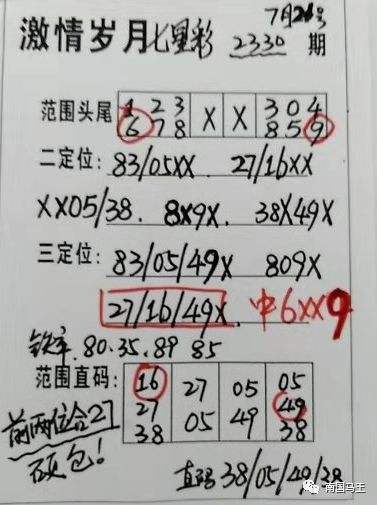 7月26号
激情岁月七星彩 2330 期
范围头尾 1 2 3 X X 3 0 4
6 7 8 8 5 9
二定位: 83/05XX 27/16XX
XX05/38. 8X9X. 38X49X
三定位: 83/05/49X 809X
27/16/49X. 中6XX9
铁率.80.35.89 85
范围直码: 16 27 05 05
27 05 49 49
38 38
前两位合27
硬包!
直码 38/05/49/38
南国乌王